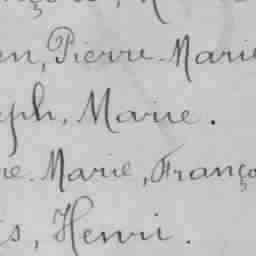 en, Pierre Marie
eph, Marie.
ne Marie, Franço
is, Henri.